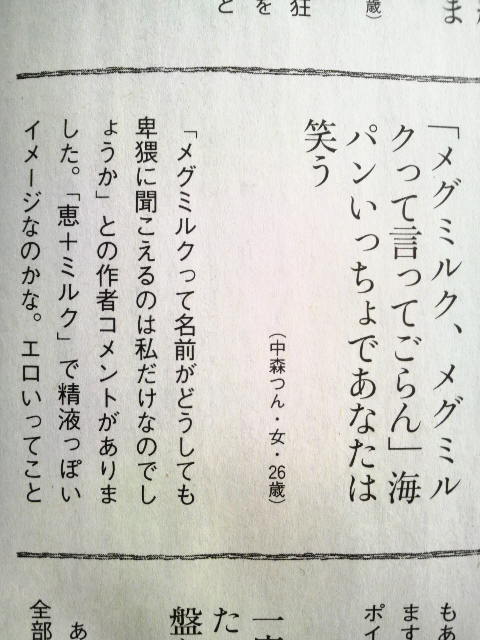 ま
歳）
狂
を
と
「メグミルク、メグミル
クって言ってごらん」海
パンいっちょであなたは
笑う
（中森つん・女・26歳）
「メグミルクって名前がどうしても
卑猥に聞こえるのは私だけなのでし
ょうか」との作者コメントがありま
した。「恵＋ミルク」で精液っぽい
イメージなのかな。エロいってこと
もあ
ます
ポイ
た
盤
あ
全部